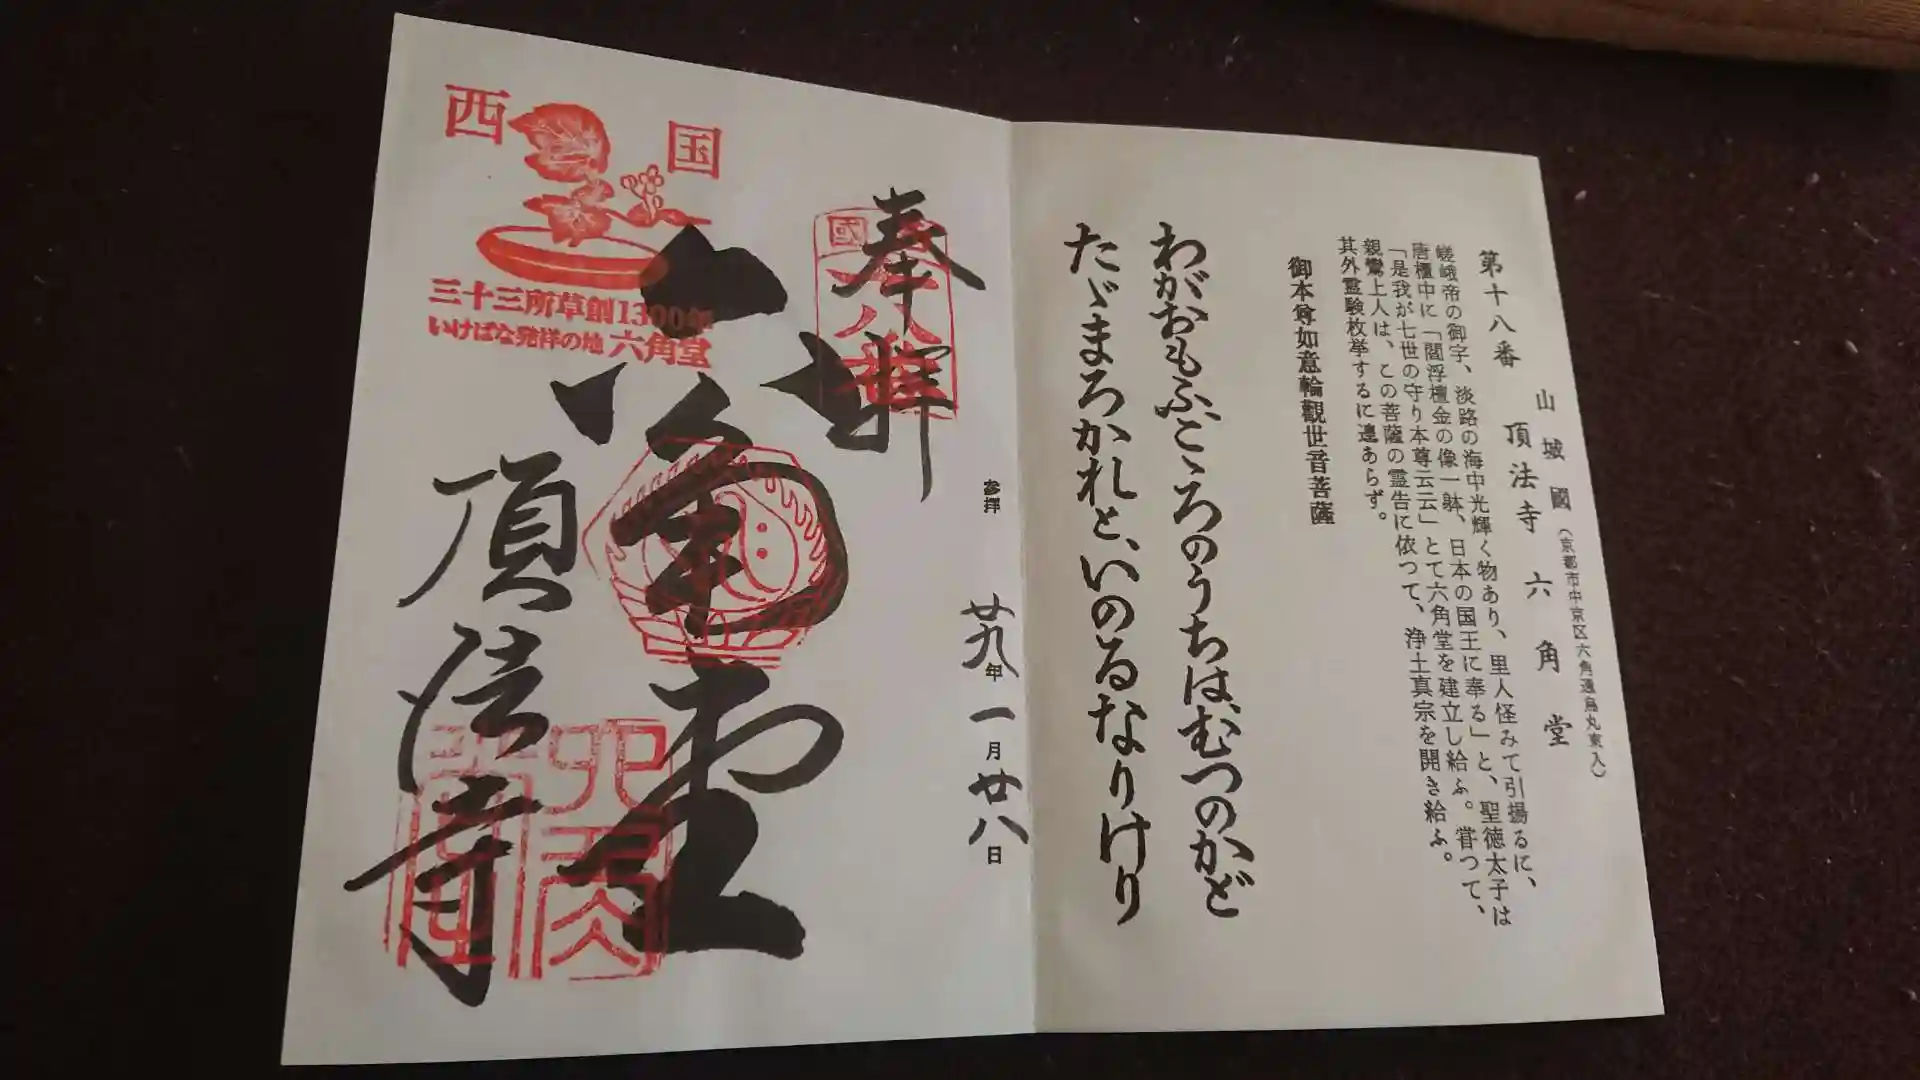 第十八番
山城國(京都市中京区六角通烏丸東入)
頂法寺 六角堂
嵯峨帝の御宇、淡路の海中光輝く物あり、里人怪みて引揚るに、
唐櫃中に「閻浮檀金の像一躰、日本の国王に奉る」と、聖徳太子は
「是我が七世の守り本尊云云」とて六角堂を建立し給ふ。甞つて、
親鸞上人は、この菩薩の霊告に依つて、浄土真宗を開き給ふ。
其外霊験枚挙するに遑あらず。
御本尊如意輪觀世音菩薩
わがおもふこゝろのうちは、むつのかど
たゞまろかれと、いのるなりけり
参拝 廿九年一月廿八日
奉拝
六角堂
頂法寺
西国
三十三所草創1300年
いけばな発祥の地 六角堂